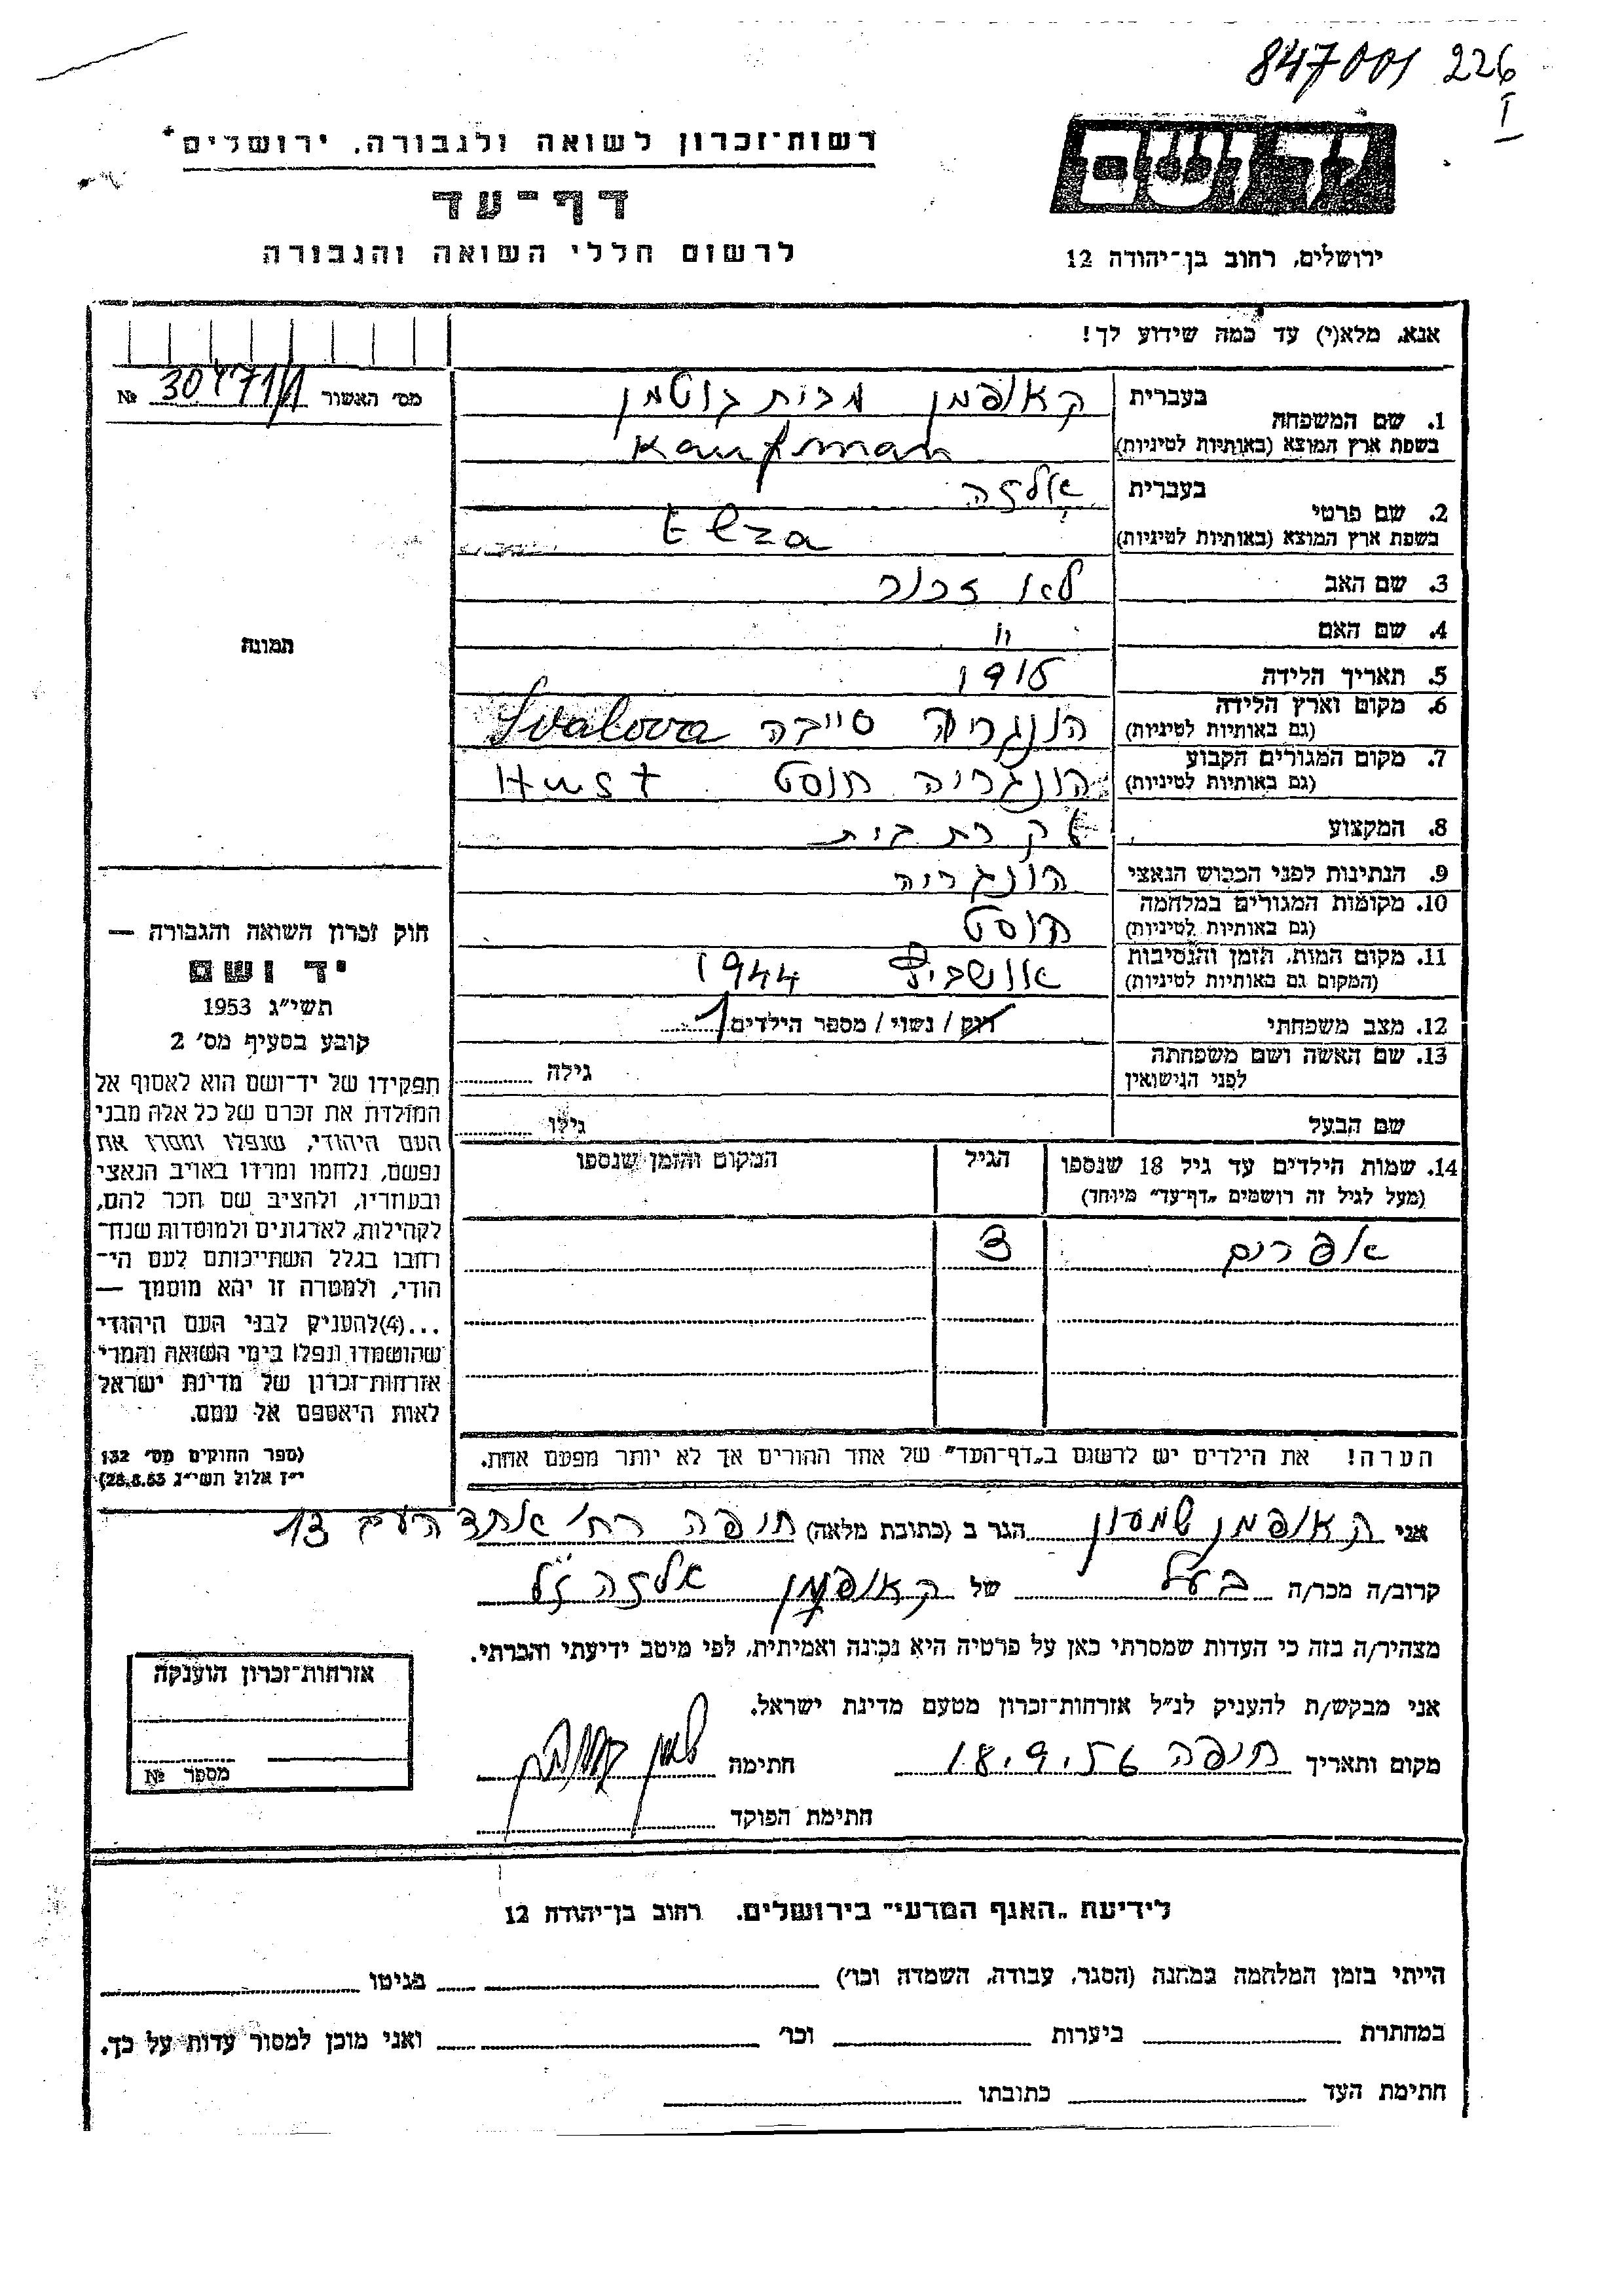 847001 226
I
רשות־זכרון לשואה ולגבורה, ירושלים
דף־עד
לרשום חללי השואה והגבורה
יד ושם
ירושלים, רחוב בן־יהודה 12
אנא, מלא(י) עד כמה שידוע לך!
מס׳ האשור 30471/1 №
1. שם המשפחה
בעברית קאופמן מבית גוטמן
בשפת ארץ המוצא (באותיות לטיניות) Kaufman
2. שם פרטי
בעברית אלזה
בשפת ארץ המוצא (באותיות לטיניות) Elza
3. שם האב לא זכור
4. שם האם "
5. תאריך הלידה 1916
6. מקום וארץ הלידה
(גם באותיות לטיניות) הונגריה Svalova
7. מקום המגורים הקבוע
(גם באותיות לטיניות) הונגריה חוסט Hust
8. המקצוע עקרת בית
9. הנתינות לפני הכבוש הנאצי הונגריה
10. מקומות המגורים במלחמה
(גם באותיות לטיניות) חוסט
11. מקום המות, הזמן והנסיבות
(המקום גם באותיות לטיניות) אושביץ 1944
12. מצב משפחתי רוק / נשוי / מספר הילדים 1
13. שם האשה ושם משפחתה
לפני הנישואין גילה
שם הבעל גילו
14. שמות הילדים עד גיל 18 שנספו
(מעל לגיל זה רושמים „דף־עד״ מיוחד)
הגיל
המקום והזמן שנספו
אפרים 3
הערה! את הילדים יש לרשום ב„דף־העד״ של אחד ההורים אך לא יותר מפעם אחת.
תמונה
חוק זכרון השואה והגבורה —
יד ושם
תשי״ג 1953
קובע בסעיף מס׳ 2
תפקידו של יד־ושם הוא לאסוף אל
המולדת את זכרם של כל אלה מבני
העם היהודי, שנפלו ומסרו את
נפשם, נלחמו ומרדו באויב הנאצי
ובעוזריו, ולהציב שם וזכר להם,
לקהילות, לארגונים ולמוסדות שנח־
רחבו בגלל השתייכותם לעם הי־
הודי, ולמטרה זו יהא מוסמך —
...(4)להעניק לבני העם היהודי
שהושמדו ונפלו בימי השואה והמרי
אזרחות־זכרון של מדינת ישראל
לאות היאספם אל עמם.
(ספר החוקים מס׳ 132
י״ז אלול תשי״ג 28.8.53)
אני קאופמן שמעון הגר ב (כתובת מלאה) חיפה רח׳ אחד העם 13
קרוב/ה מכר/ה בעל של קאופמן אלזה ז״ל
מצהיר/ה בזה כי העדות שמסרתי כאן על פרטיה היא נכונה ואמיתית, לפי מיטב ידיעתי והכרתי.
אני מבקש/ת להעניק לנ״ל אזרחות־זכרון מטעם מדינת ישראל.
מקום ותאריך חיפה 18.9.56 חתימה
חתימת הפוקד
אזרחות־זכרון הוענקה
מספר №
לידיעת „האגף המדעי״ בירושלים, רחוב בן־יהודה 12
הייתי בזמן המלחמה במחנה (הסגר, עבודה, השמדה וכו׳) בגיטו
במחתרת ביערות וכו׳ ואני מוכן למסור עדות על כך.
חתימת העד כתובתו